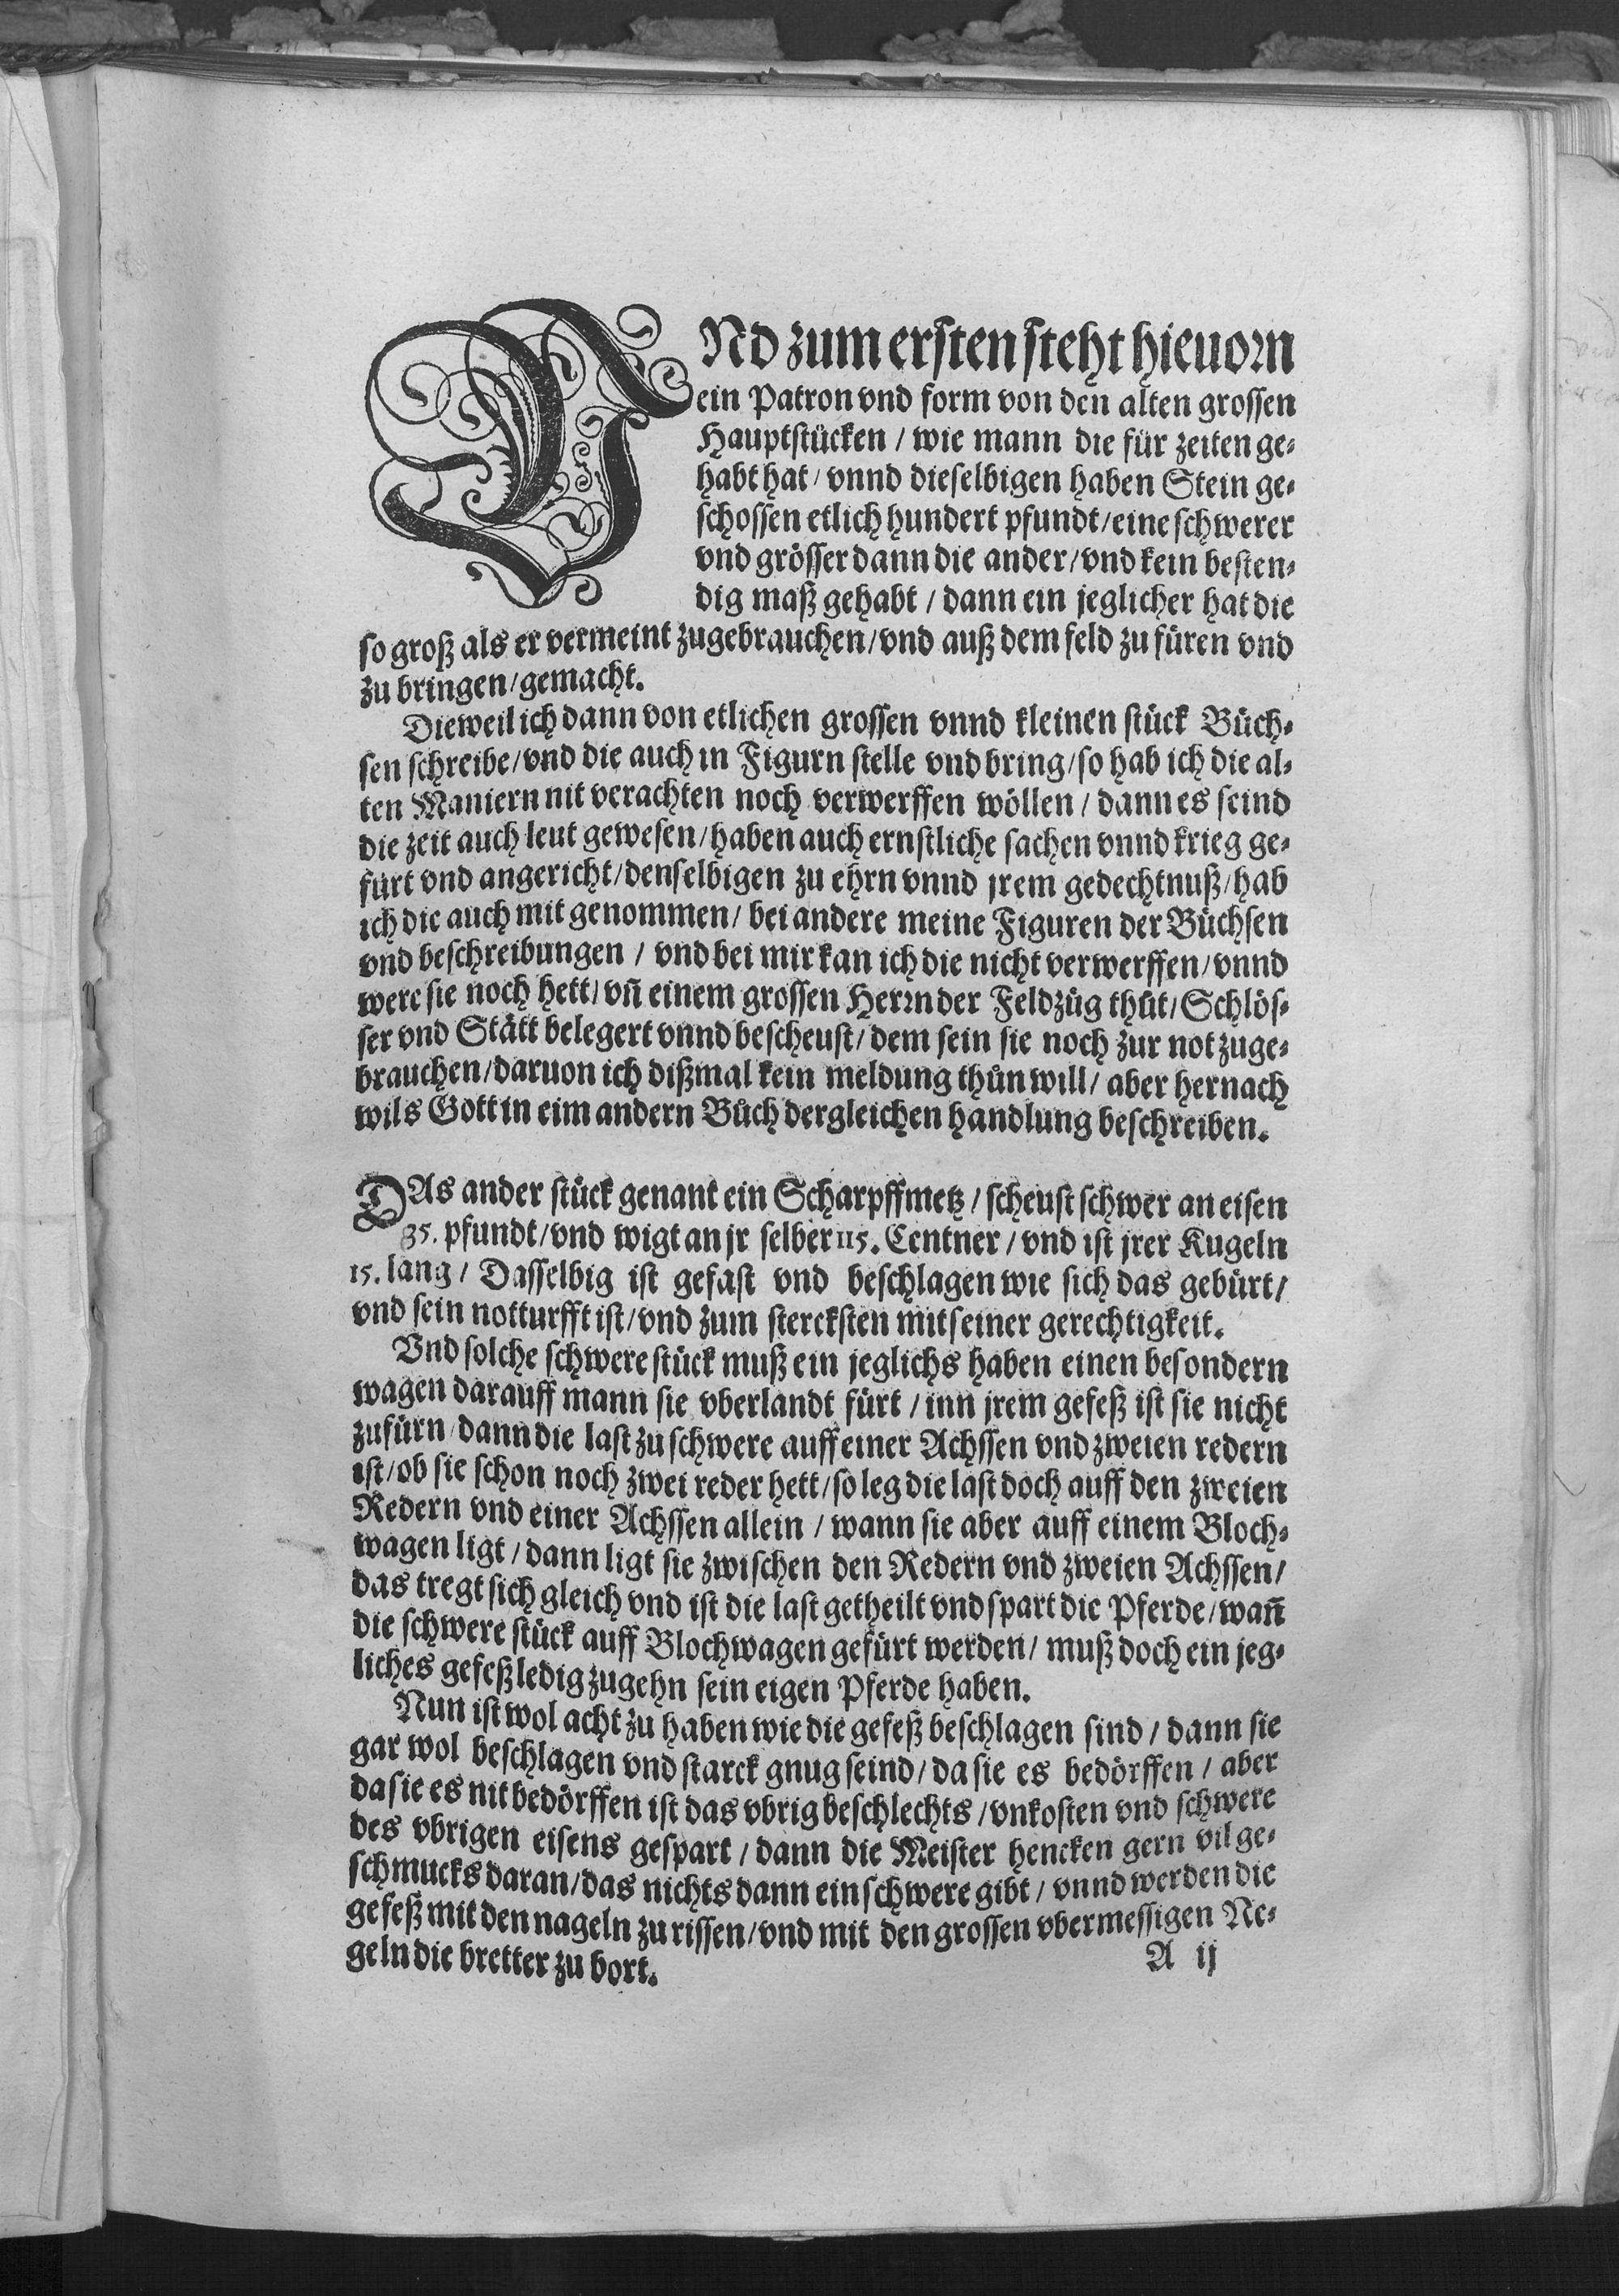 VNd zum ersten steht hieuorn
ein Patron vnd form von den alten grossen
Hauptstücken / wie mann die für zeiten ge-
habt hat / vnnd dieselbigen haben Stein ge-
schossen etlich hundert pfundt / eine schwerer
vnd grösser dann die ander / vnd kein besten-
dig maß gehabt / dann ein jeglicher hat die
so groß als er vermeint zugebrauchen / vnd auß dem feld zu füren vnd
zu bringen / gemacht.
Dieweil ich dann von etlichen grossen vnnd kleinen stück Büch-
sen schreibe / vnd die auch in Figurn stelle vnd bring / so hab ich die al-
ten Maniern nit verachten noch verwerffen wöllen / dann es seind
die zeit auch leut gewesen / haben auch ernstliche sachen vnnd krieg ge-
fürt vnd angericht / denselbigen zu ehrn vnnd jrem gedechtnuß / hab
ich die auch mit genommen / bei andere meine Figuren der Büchsen
vnd beschreibungen / vnd bei mir kan ich die nicht verwerffen / vnnd
were sie noch hett / vñ einem grossen Herrn der Feldzüg thůt / Schlös-
ser vnd Stätt belegert vnnd bescheust / dem sein sie noch zur not zuge-
brauchen / daruon ich dißmal kein meldung thůn will / aber hernach
wils Gott in eim andern Bůch dergleichen handlung beschreiben.
DAs ander stück genant ein Scharpffmetz / scheust schwer an eisen
35. pfundt / vnd wigt an jr selber 115. Centner / vnd ist jrer Kugeln
15. lang / Dasselbig ist gefast vnd beschlagen wie sich das gebürt /
vnd sein notturfft ist / vnd zum stercksten mit seiner gerechtigkeit.
Vnd solche schwere stück muß ein jeglichs haben einen besondern
wagen darauff mann sie vberlandt fürt / inn jrem gefeß ist sie nicht
zufürn / dann die last zu schwere auff einer Achssen vnd zweien redern
ist / ob sie schon noch zwei reder hett / so leg die last doch auff den zweien
Redern vnd einer Achssen allein / wann sie aber auff einem Bloch-
wagen ligt / dann ligt sie zwischen den Redern vnd zweien Achssen /
das tregt sich gleich vnd ist die last getheilt vnd spart die Pferde / wañ
die schwere stück auff Blochwagen gefürt werden / muß doch ein jeg-
liches gefeß ledig zugehn sein eigen Pferde haben.
Nun ist wol acht zu haben wie die gefeß beschlagen sind / dann sie
gar wol beschlagen vnd starck gnug seind / da sie es bedörffen / aber
da sie es nit bedörffen ist das vbrig beschlechts / vnkosten vnd schwere
des vbrigen eisens gespart / dann die Meister hencken gern vil ge-
schmucks daran / das nichts dann ein schwere gibt / vnnd werden die
gefeß mit den nageln zu rissen / vnd mit den grossen vbermessigen Ne-
geln die bretter zu bort.
A ij